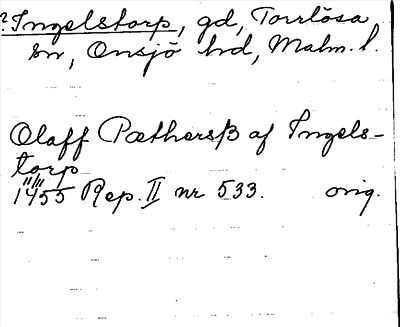 ?Ingelstorp, gd, Torrlösa
sn, Onsjö hd, Malm. l.
Olaff Pæthersß af Ingels-
torp
11/11
1455 Rep. II nr 533. orig.